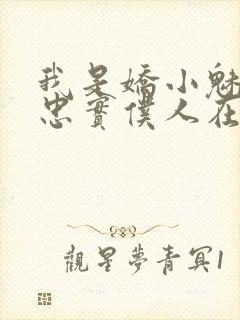 我是嬌小魅
忠實僕人在
觀星夢青冥1